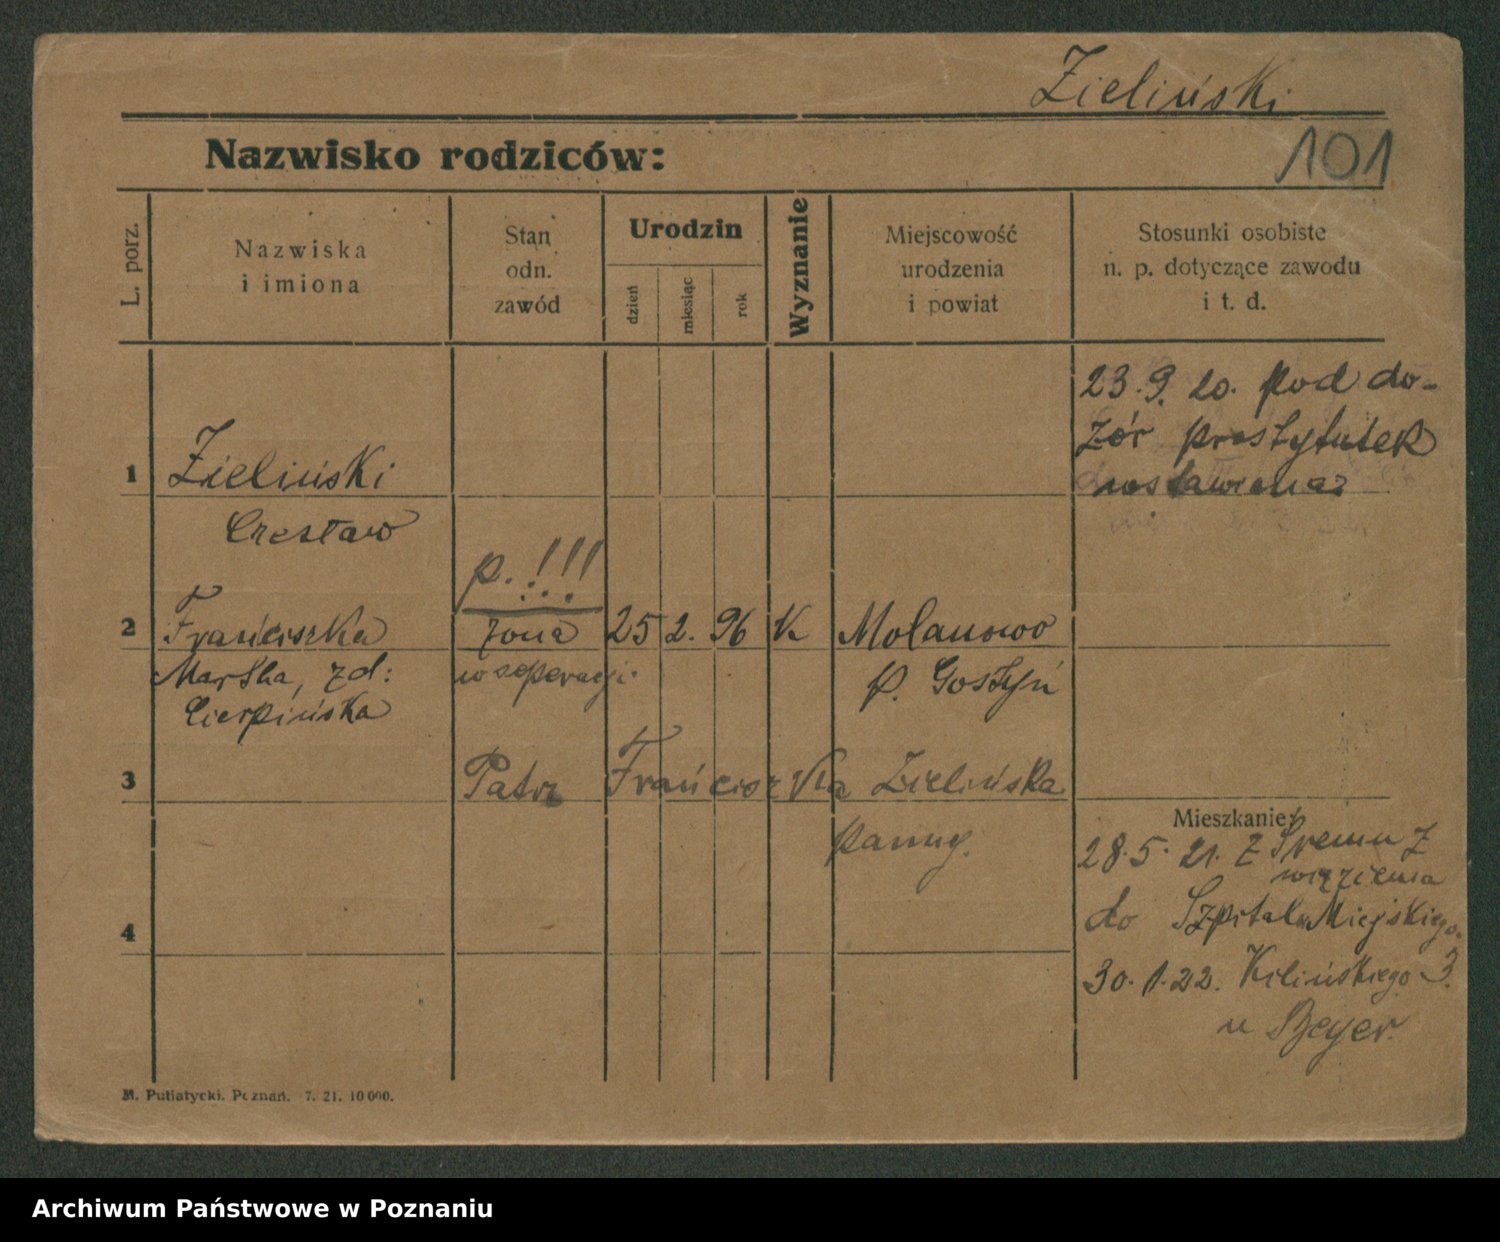 Zieliński
Nazwisko rodziców:
101
L. porz.
Nazwiska
i imiona
Stan
odn.
zawód
Urodzin
dzień
miesiąc
rok
Wyznanie
Miejscowość
urodzenia
i powiat
Stosunki osobiste
n. p. dotyczące zawodu
i t. d.
23.9.20. pod do-
zór prostytutek
1 Zieliński
Czesław
p. !!!
2 Franciszka żona 25 2. 96 K
Martha, zd:
w seperacji.
p. Gostyń
Cierpińska
3 Patrz Franciszka Zielińska
panny.
Mieszkanie:
28.5.21. Z Śremu z
więzienia
do Szpitala Miejskiego.
4
30.1.22. Kilińskiego 3.
u Beyer.
M. Putiatycki. Poznań. 7. 21. 10 000.
Archiwum Państwowe w Poznaniu